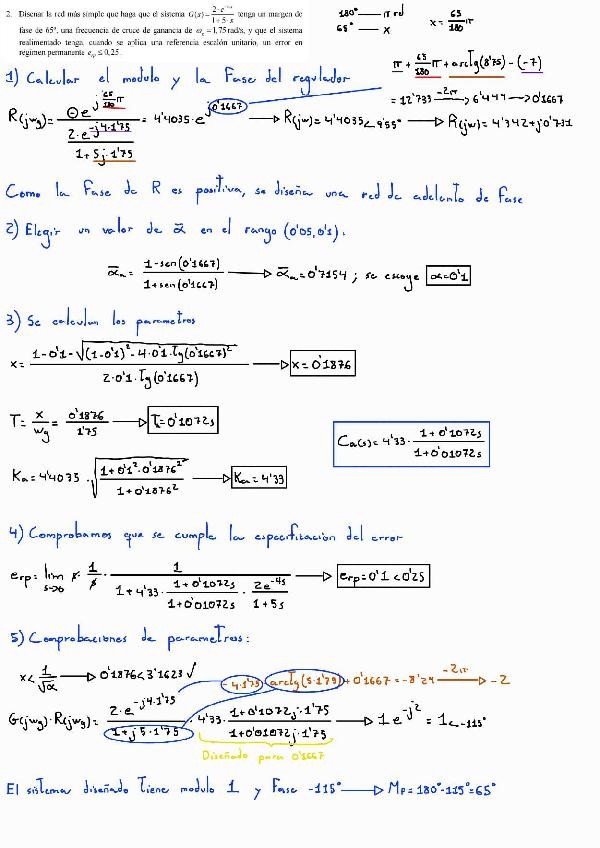 2. Diseñar la red más simple que haga que el sistema G(s) = 2·e^-4s / (1+5·s) tenga un margen de
fase de 65º, una frecuencia de cruce de ganancia de ω_g = 1,75 rad/s, y que el sistema
realimentado tenga, cuando se aplica una referencia escalón unitario, un error en
régimen permanente e_rp ≤ 0,25.
180° — π rd
65° — x
x = 65/180 π
1) Calcular el modulo y la Fase del regulador
π + 65/180 π + arctg(8'75) - (-7)
= 12'733 -2π→ 6'444 → 0'1667
R(jwg) = 1 e^(j 65/180 π) / (2·e^(-j4·1'75) / (1+5j·1'75)) = 4'4035·e^(j0'1667) → R(jw) = 4'4035<9'55° → R(jw) = 4'342+j0'731
Como la Fase de R es positiva, se diseña una red de adelanto de Fase
2) Elegir un valor de α en el rango (0'05,0'1):
ᾱa = (1-sen(0'1667)) / (1+sen(0'1667)) → ᾱa = 0'7154 ; se escoge α=0'1
3) Se calculan los parametros
x = (1-0'1-√((1-0'1)²-4·0'1·Tg(0'1667)²)) / (2·0'1·Tg(0'1667)) → x=0'1876
T = x/wg = 0'1876/1'75 → T=0'1072s
Ca(s) = 4'33 · (1+0'1072s) / (1+0'01072s)
Ka = 4'4035 · √((1+0'1²·0'1876²) / (1+0'1876²)) → Ka=4'33
4) Comprobamos que se cumple la especificación del error
erp = lim s→0 s · 1/s · 1 / (1+4'33 · (1+0'1072s)/(1+0'01072s) · 2e^-4s/(1+5s)) → erp=0'1<0'25
5) Comprobaciones de parametros:
x < 1/√α → 0'1876<3'1623 ✓
-4·1'75 - arctg(5·1'75)+0'1667=-8'24 -2π→ -2
G(jwg)·R(jwg) = 2·e^(-j4·1'75) / (1+j5·1'75) · 4'33 · (1+0'1072j·1'75) / (1+0'01072j·1'75) → 1 e^(-j2) = 1<-115°
Diseñado para 0'1667
El sistema diseñado tiene modulo 1 y Fase -115° → MF=180°-115°=65°